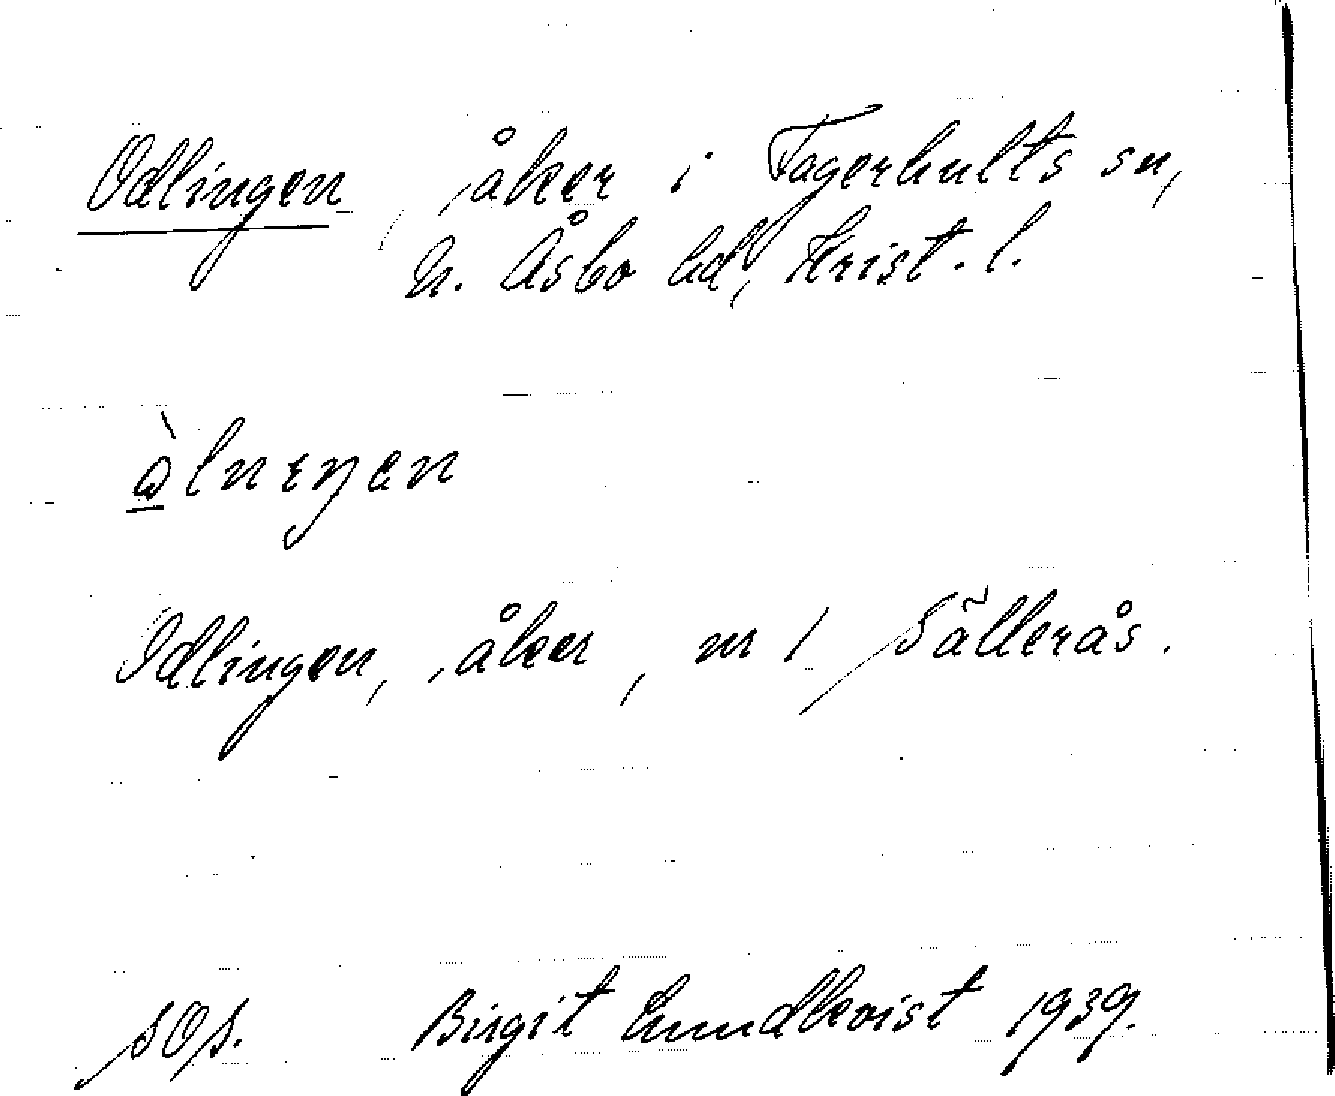 Odlingen, åker i Fagerhults sn,
N. Åsbo hd, Krist. l.
Odlingen, åker, nr 1 Sällerås.
SOS. Birgit Lundkvist 1939.